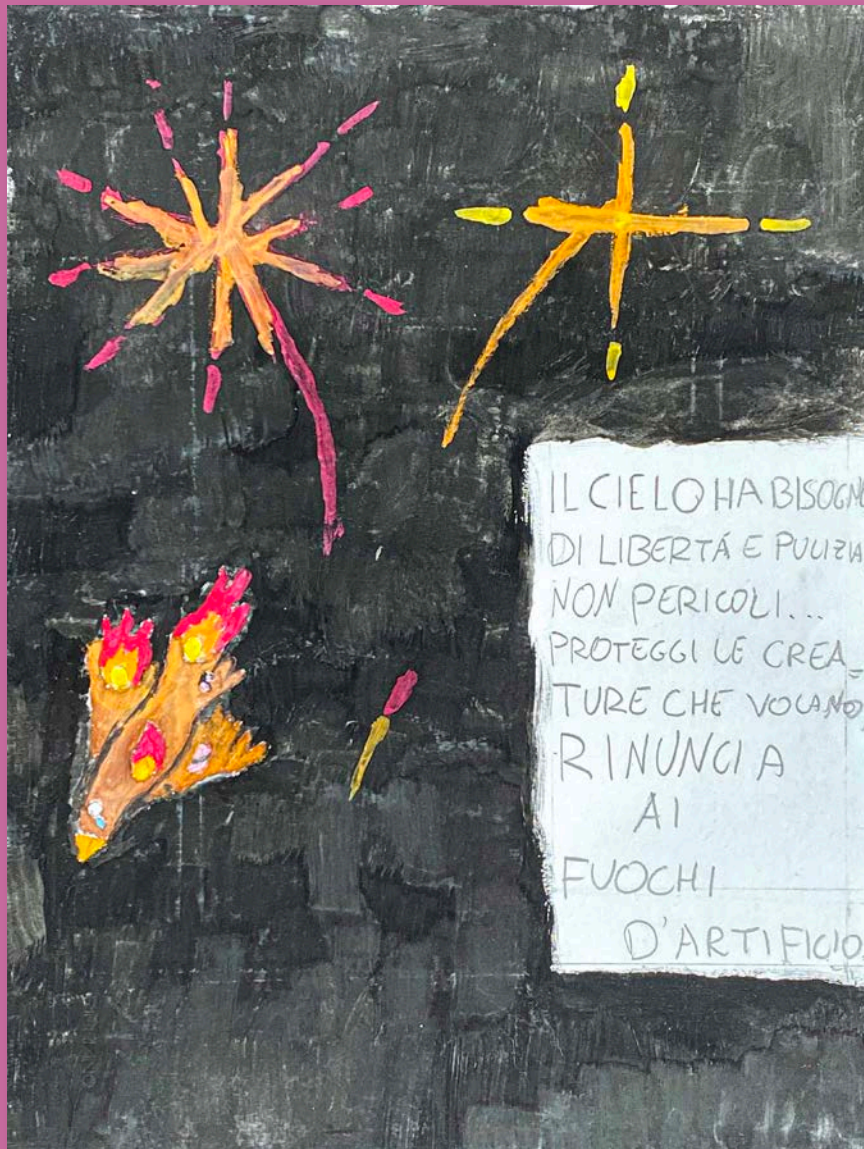 IL CIELO HA BISOGNO
DI LIBERTÁ E PULIZIA
NON PERICOLI...
PROTEGGI LE CREA_
TURE CHE VOLANO,
RINUNCIA
AI
FUOCHI
D'ARTIFICIO.